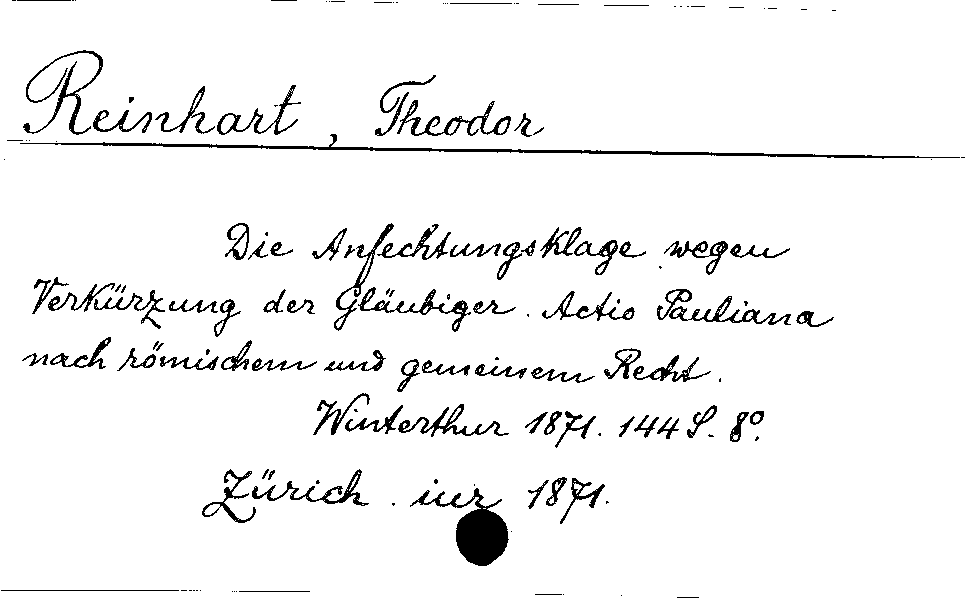 Reinhart, Theodor
Die Anfechtungsklage wegen
Verkürzung der Gläubiger. Actio Pauliana
nach römischem und gemeinem Recht.
Winterthur 1871. 144 S. 8°.
Zürich. iur 1871.